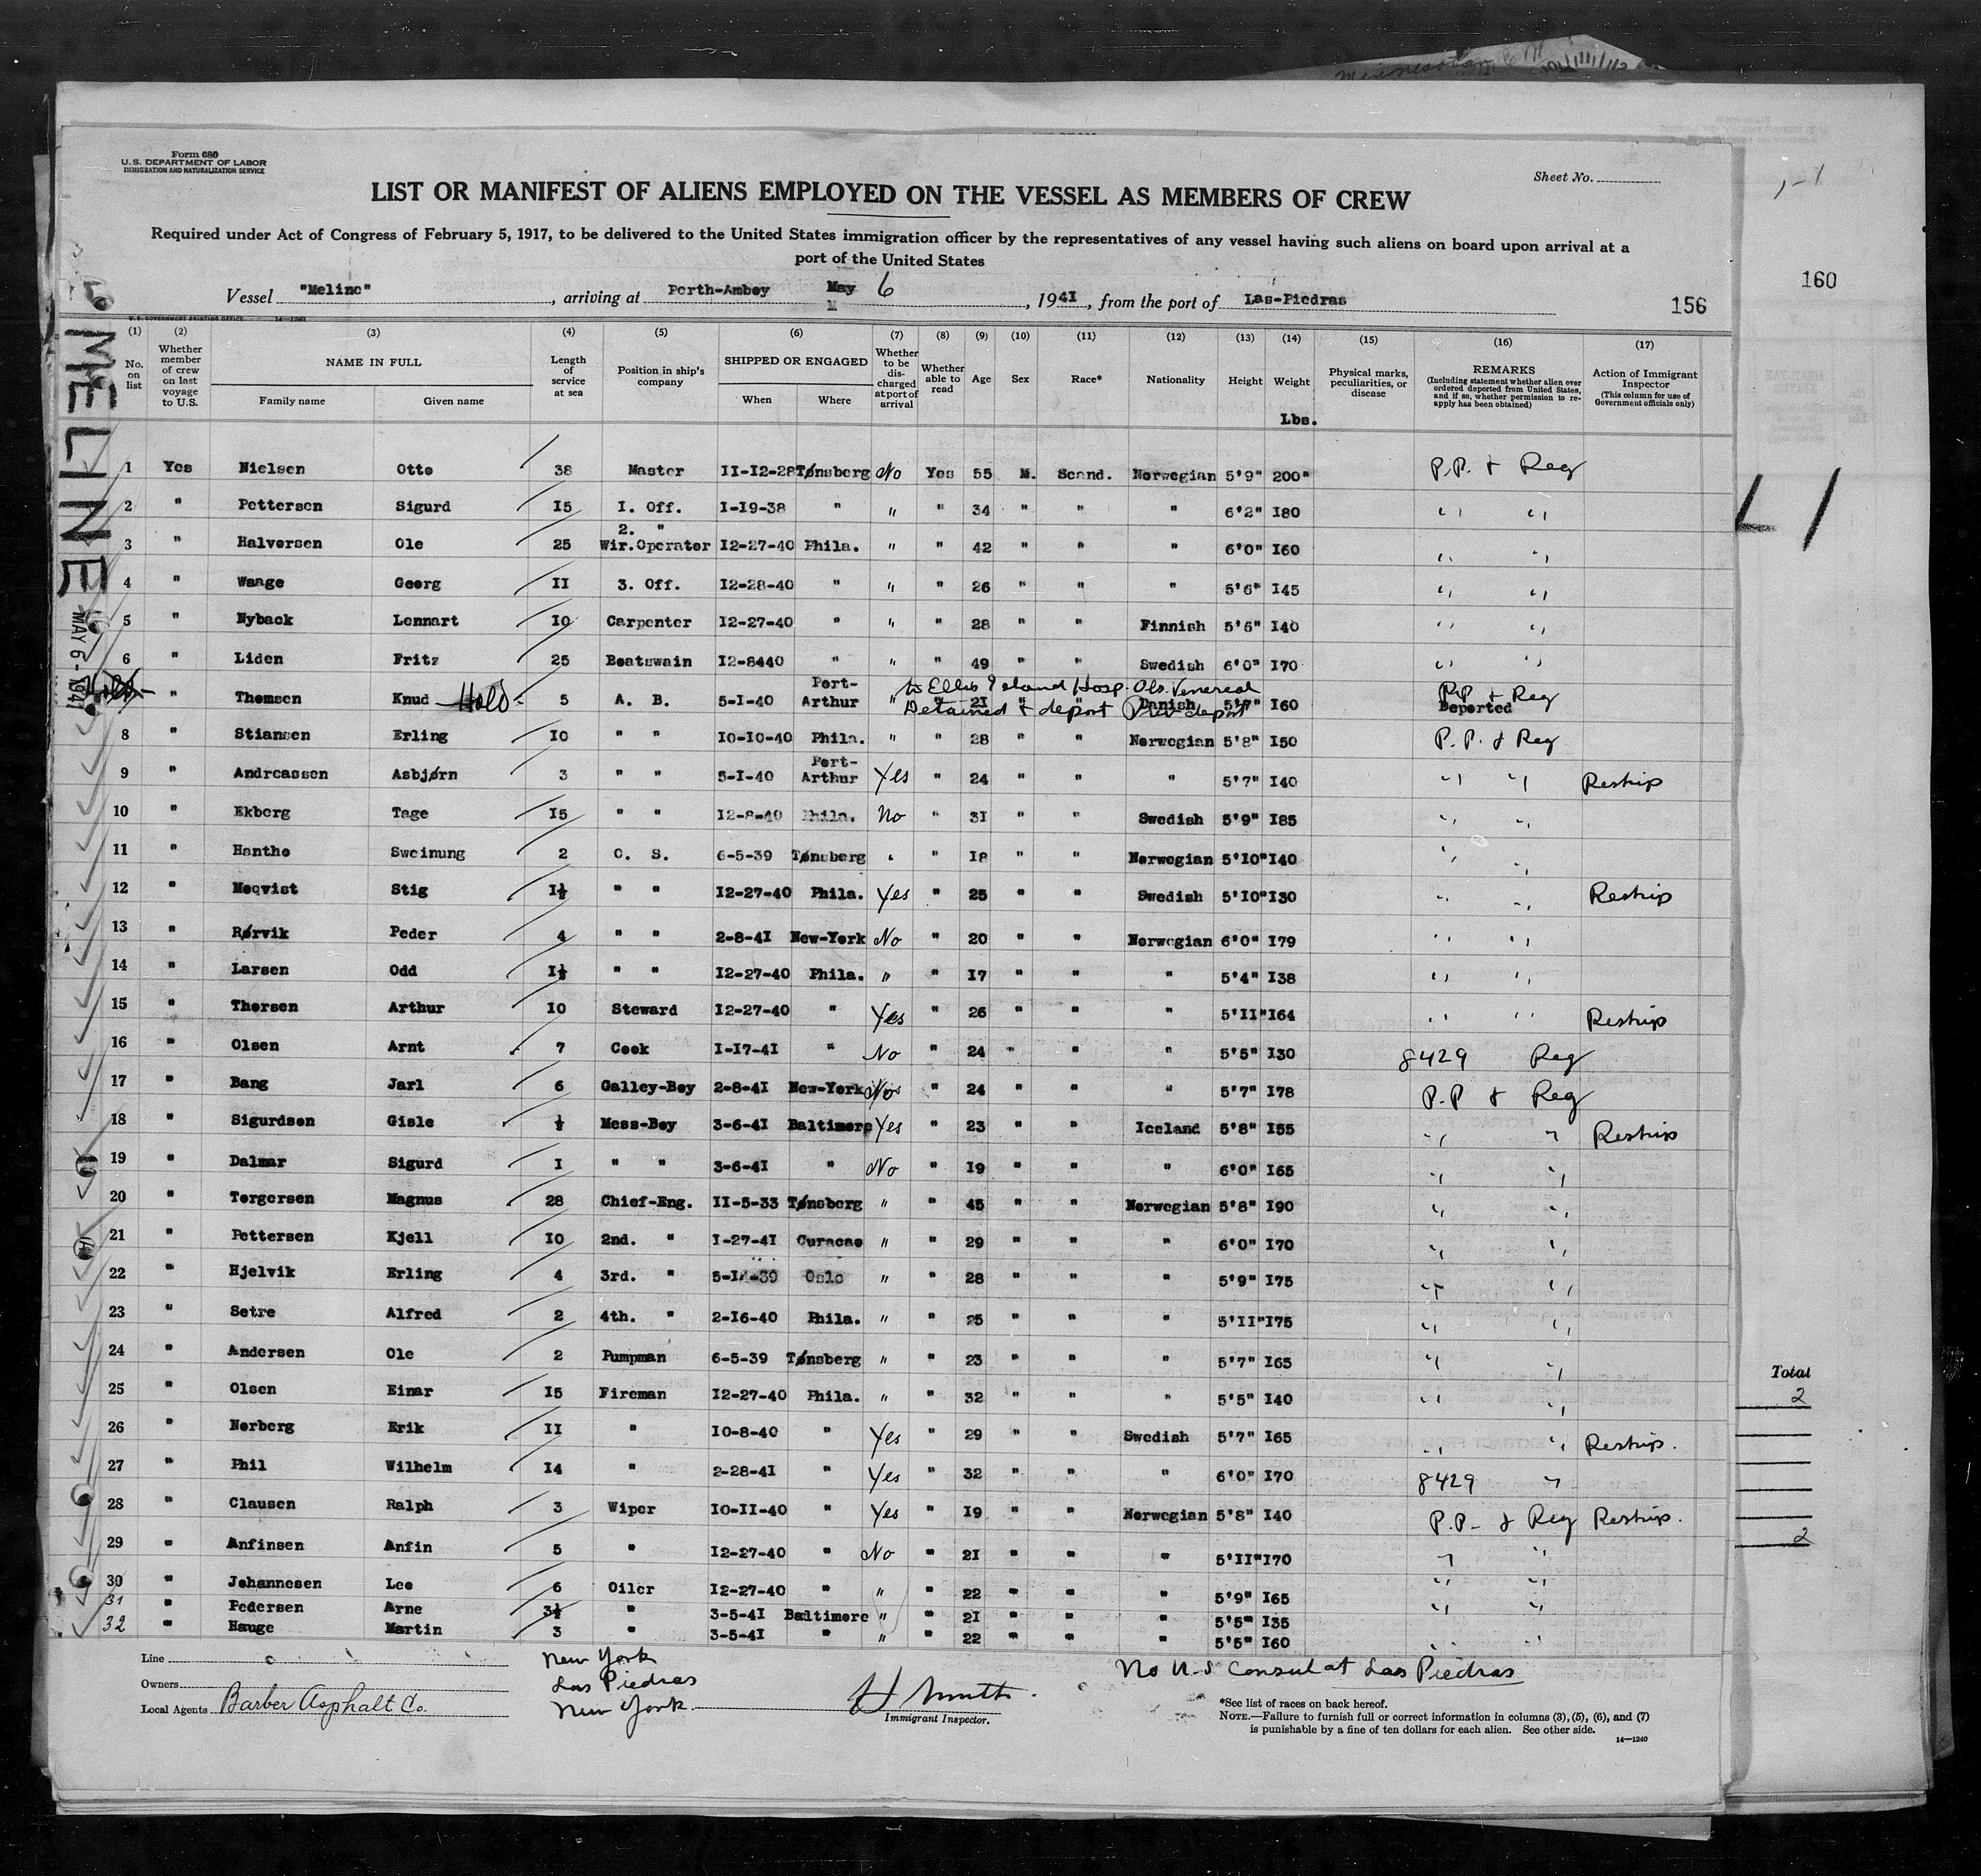 Form 680
U.S. DEPARTMENT OF LABOR
IMMIGRATION AND NATURALIZATION SERVICE
Sheet No.
LIST OR MANIFEST OF ALIENS EMPLOYED ON THE VESSEL AS MEMBERS OF CREW
Required under Act of Congress of February 5, 1917, to be delivered to the United States immigration officer by the representatives of any vessel having such aliens on board upon arrival at a
port of the United States
160
Vessel "Meline", arriving at Perth-Amboy May 6, 1941, from the port of Las-Piedras 156
U.S. GOVERNMENT PRINTING OFFICE 14—1240
MELINE
MAY 6 - 1941
(1) (2) (3) (4) (5) (6) (7) (8) (9) (10) (11) (12) (13) (14) (15) (16) (17)
No. on list
Whether member of crew on last voyage to U.S.
NAME IN FULL
Family name Given name
Length of service at sea
Position in ship's company
SHIPPED OR ENGAGED
When Where
Whether to be discharged at port of arrival
Whether able to read
Age Sex Race* Nationality Height Weight
Lbs.
Physical marks, peculiarities, or disease
REMARKS
(Including statement whether alien ever ordered deported from United States, and if so, whether permission to re-apply has been obtained)
Action of Immigrant Inspector
(This column for use of Government officials only)
1 Yes Nielsen Otto 38 Master II-I2-28 Tønsberg No Yes 55 M. Scand. Norwegian 5'9" 200" P.P. & Reg
2 " Pettersen Sigurd I5 I. Off. I-I9-38 " " " 34 " " " 6'2" I80 " "
3 " Halversen Ole 25 2. " Wir.Operator I2-27-40 Phila. " " 42 " " " 6'0" I60 " "
4 " Waage Georg II 3. Off. I2-28-40 " " " 26 " " " 5'6" I45 " "
5 " Nyback Lennart I0 Carpenter I2-27-40 " " " 28 " " Finnish 5'6" I40 " "
6 " Liden Fritz 25 Boatswain I2-8440 " " " 49 " " Swedish 6'0" I70 " "
to Ellis Island Hosp. Obs. Venereal
" Thomsen Knud Hold- 5 A. B. 5-I-40 Port-Arthur " " 2I " " Danish 5'7" I60 P.P. & Reg Deported
Detained & deport Prev deport
8 " Stiansen Erling I0 " " I0-I0-40 Phila. " " 28 " " Norwegian 5'8" I50 P.P. & Reg
9 " Andreassen Asbjørn 3 " " 5-I-40 Port-Arthur Yes " 24 " " " 5'7" I40 " " Reship
10 " Ekberg Tage I5 " " I2-8-40 Phila. No " 3I " " Swedish 5'9" I85 " "
11 " Hantho Sweinung 2 O. S. 6-5-39 Tønsberg " " I8 " " Norwegian 5'I0" I40 " "
12 " Moqvist Stig I½ " " I2-27-40 Phila. Yes " 25 " " Swedish 5'I0" I30 " " Reship
13 " Rørvik Peder 4 " " 2-8-4I New-York No " 20 " " Norwegian 6'0" I79 " "
14 " Larsen Odd I½ " " I2-27-40 Phila. " " I7 " " " 5'4" I38 " "
15 " Thorsen Arthur I0 Steward I2-27-40 " Yes " 26 " " " 5'II" I64 " " Reship
16 " Olsen Arnt 7 Cook I-I7-4I " No " 24 " " " 5'5" I30 8429 Reg
17 " Bang Jarl 6 Galley-Boy 2-8-4I New-York No " 24 " " " 5'7" I78 P.P & Reg
18 " Sigurdsen Gisle ½ Mess-Boy 3-6-4I Baltimore Yes " 23 " " Iceland 5'8" I55 " " Reship
19 " Dalmar Sigurd I " " 3-6-4I " No " I9 " " " 6'0" I65 " "
20 " Torgersen Magnus 28 Chief-Eng. II-5-33 Tønsberg " " 45 " " Norwegian 5'8" I90 " "
21 " Pettersen Kjell I0 2nd. " I-27-4I Curacao " " 29 " " " 6'0" I70 " "
22 " Hjelvik Erling 4 3rd. " Oslo " " 28 " " " 5'9" I75 " "
23 " Setre Alfred 2 4th. " 2-I6-40 Phila. " " 25 " " " 5'II" I75 " "
24 " Andersen Ole 2 Pumpman 6-5-39 Tønsberg " " 23 " " " 5'7" I65 " "
25 " Olsen Einar I5 Fireman I2-27-40 Phila. " " 32 " " " 5'5" I40 " "
26 " Norberg Erik II " I0-8-40 " Yes " 29 " " Swedish 5'7" I65 " " Reship.
27 " Phil Wilhelm I4 " 2-28-4I " Yes " 32 " " " 6'0" I70 8429 "
28 " Clausen Ralph 3 Wiper I0-II-40 " Yes " I9 " " Norwegian 5'8" I40 P.P. & Reg Reship.
29 " Anfinsen Anfin 5 " I2-27-40 " No " 2I " " " 5'II" I70 " "
30 " Johannesen Leo 6 Oiler I2-27-40 " " " 22 " " " 5'9" I65 " "
31 " Pedersen Arne 3½ " 3-5-4I Baltimore " " 2I " " " 5'5" I35 " "
32 " Hauge Martin 3 " 3-5-4I " " " 22 " " " 5'5" I60 " "
Total
2
2
Line
Owners
Local Agents Barber Asphalt Co.
New York
Las Piedras
New York
H Smith.
Immigrant Inspector.
No U.S Consul at Las Piedras
*See list of races on back hereof.
NOTE.—Failure to furnish full or correct information in columns (3), (5), (6), and (7)
is punishable by a fine of ten dollars for each alien. See other side.
14—1240